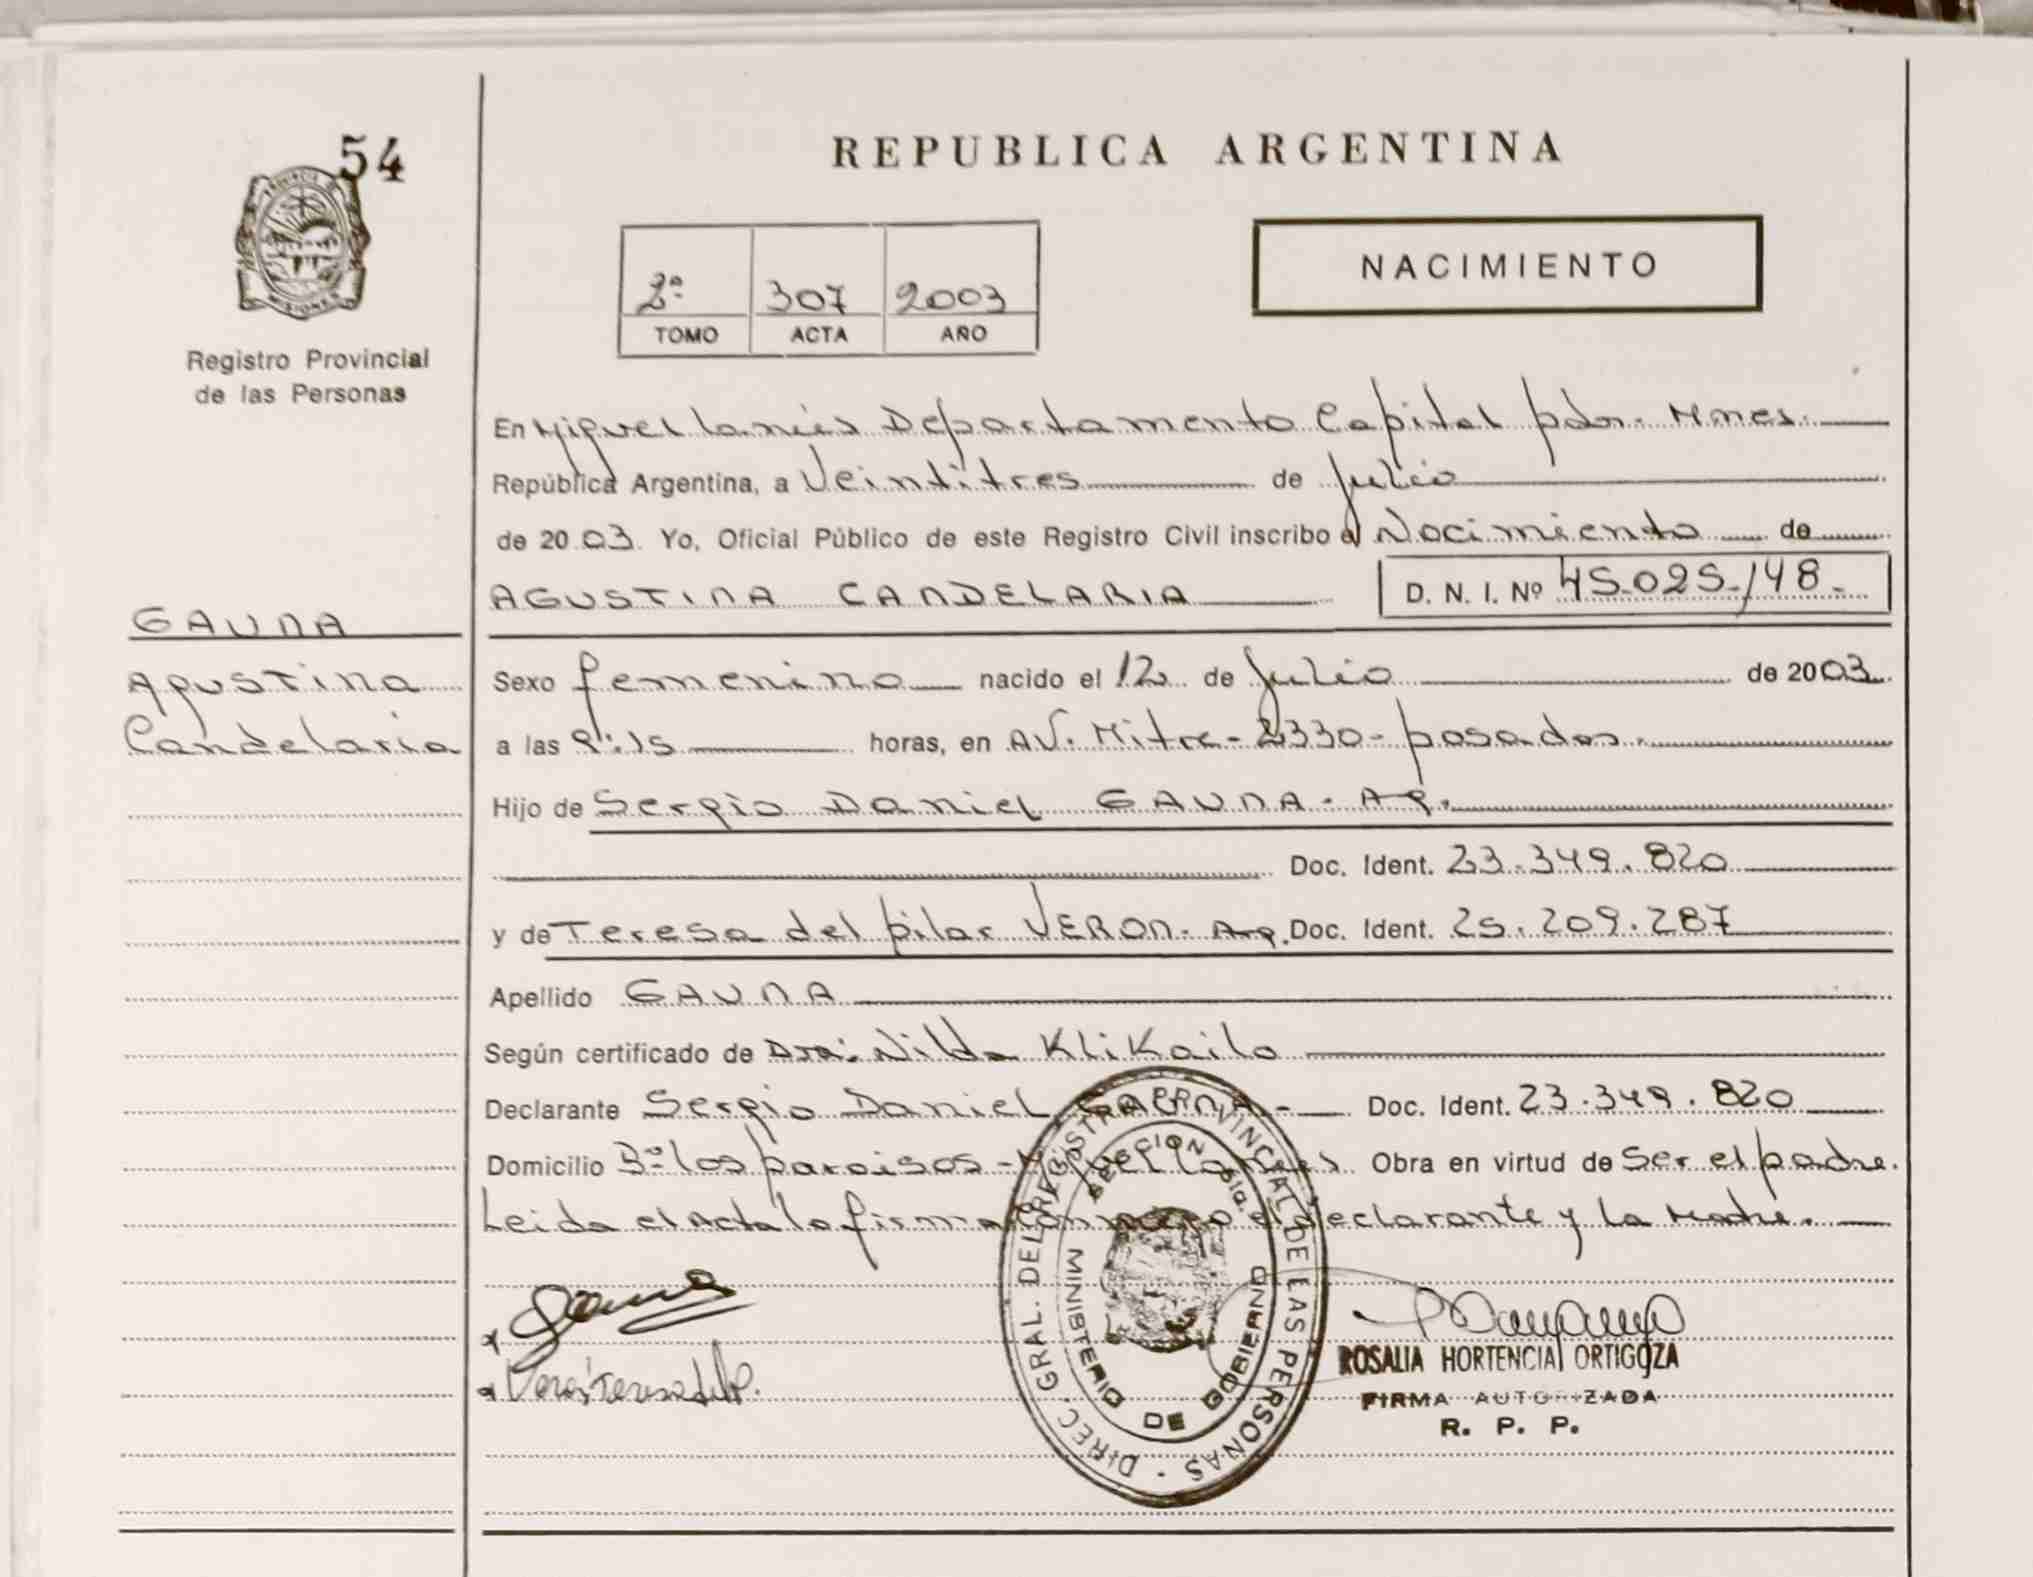 54
PROVINCIA DE
MISIONES
Registro Provincial
de las Personas
GAUNA
Agustina
Candelaria
REPUBLICA ARGENTINA
2º 307 2003
TOMO ACTA AÑO
NACIMIENTO
En Miguel Lanús Departamento Capital pdas. Mnes.
República Argentina, a Veintitres de Julio
de 2003. Yo, Oficial Público de este Registro Civil inscribo el Nacimiento de
AGUSTINA CANDELARIA D. N. I. Nº 45.025.148.-
Sexo femenino nacido el 12 de Julio de 2003
a las 9:15 horas, en AV. Mitre - 2330 - posadas.
Hijo de Sergio Daniel GAUNA. Ar.
Doc. Ident. 23.349.820
y de Teresa del pilar VERON. Arg. Doc. Ident. 25.209.287
Apellido GAUNA
Según certificado de Dra. Nilda Klikailo
Declarante Sergio Daniel GAUNA.- Doc. Ident. 23.349.820
Domicilio Bº los paraisos - Miguel Lanús Obra en virtud de Ser el padre.
Leida el Acta la firman conmigo el declarante y La Madre.
DIREC. GRAL. DEL REGISTRO PROVINCIAL DE LAS PERSONAS
SECCION
MINISTERIO DE GOBIERNO
Gauna
Veron Teresa del P.
ROSALIA HORTENCIA ORTIGOZA
FIRMA AUTORIZADA
R. P. P.